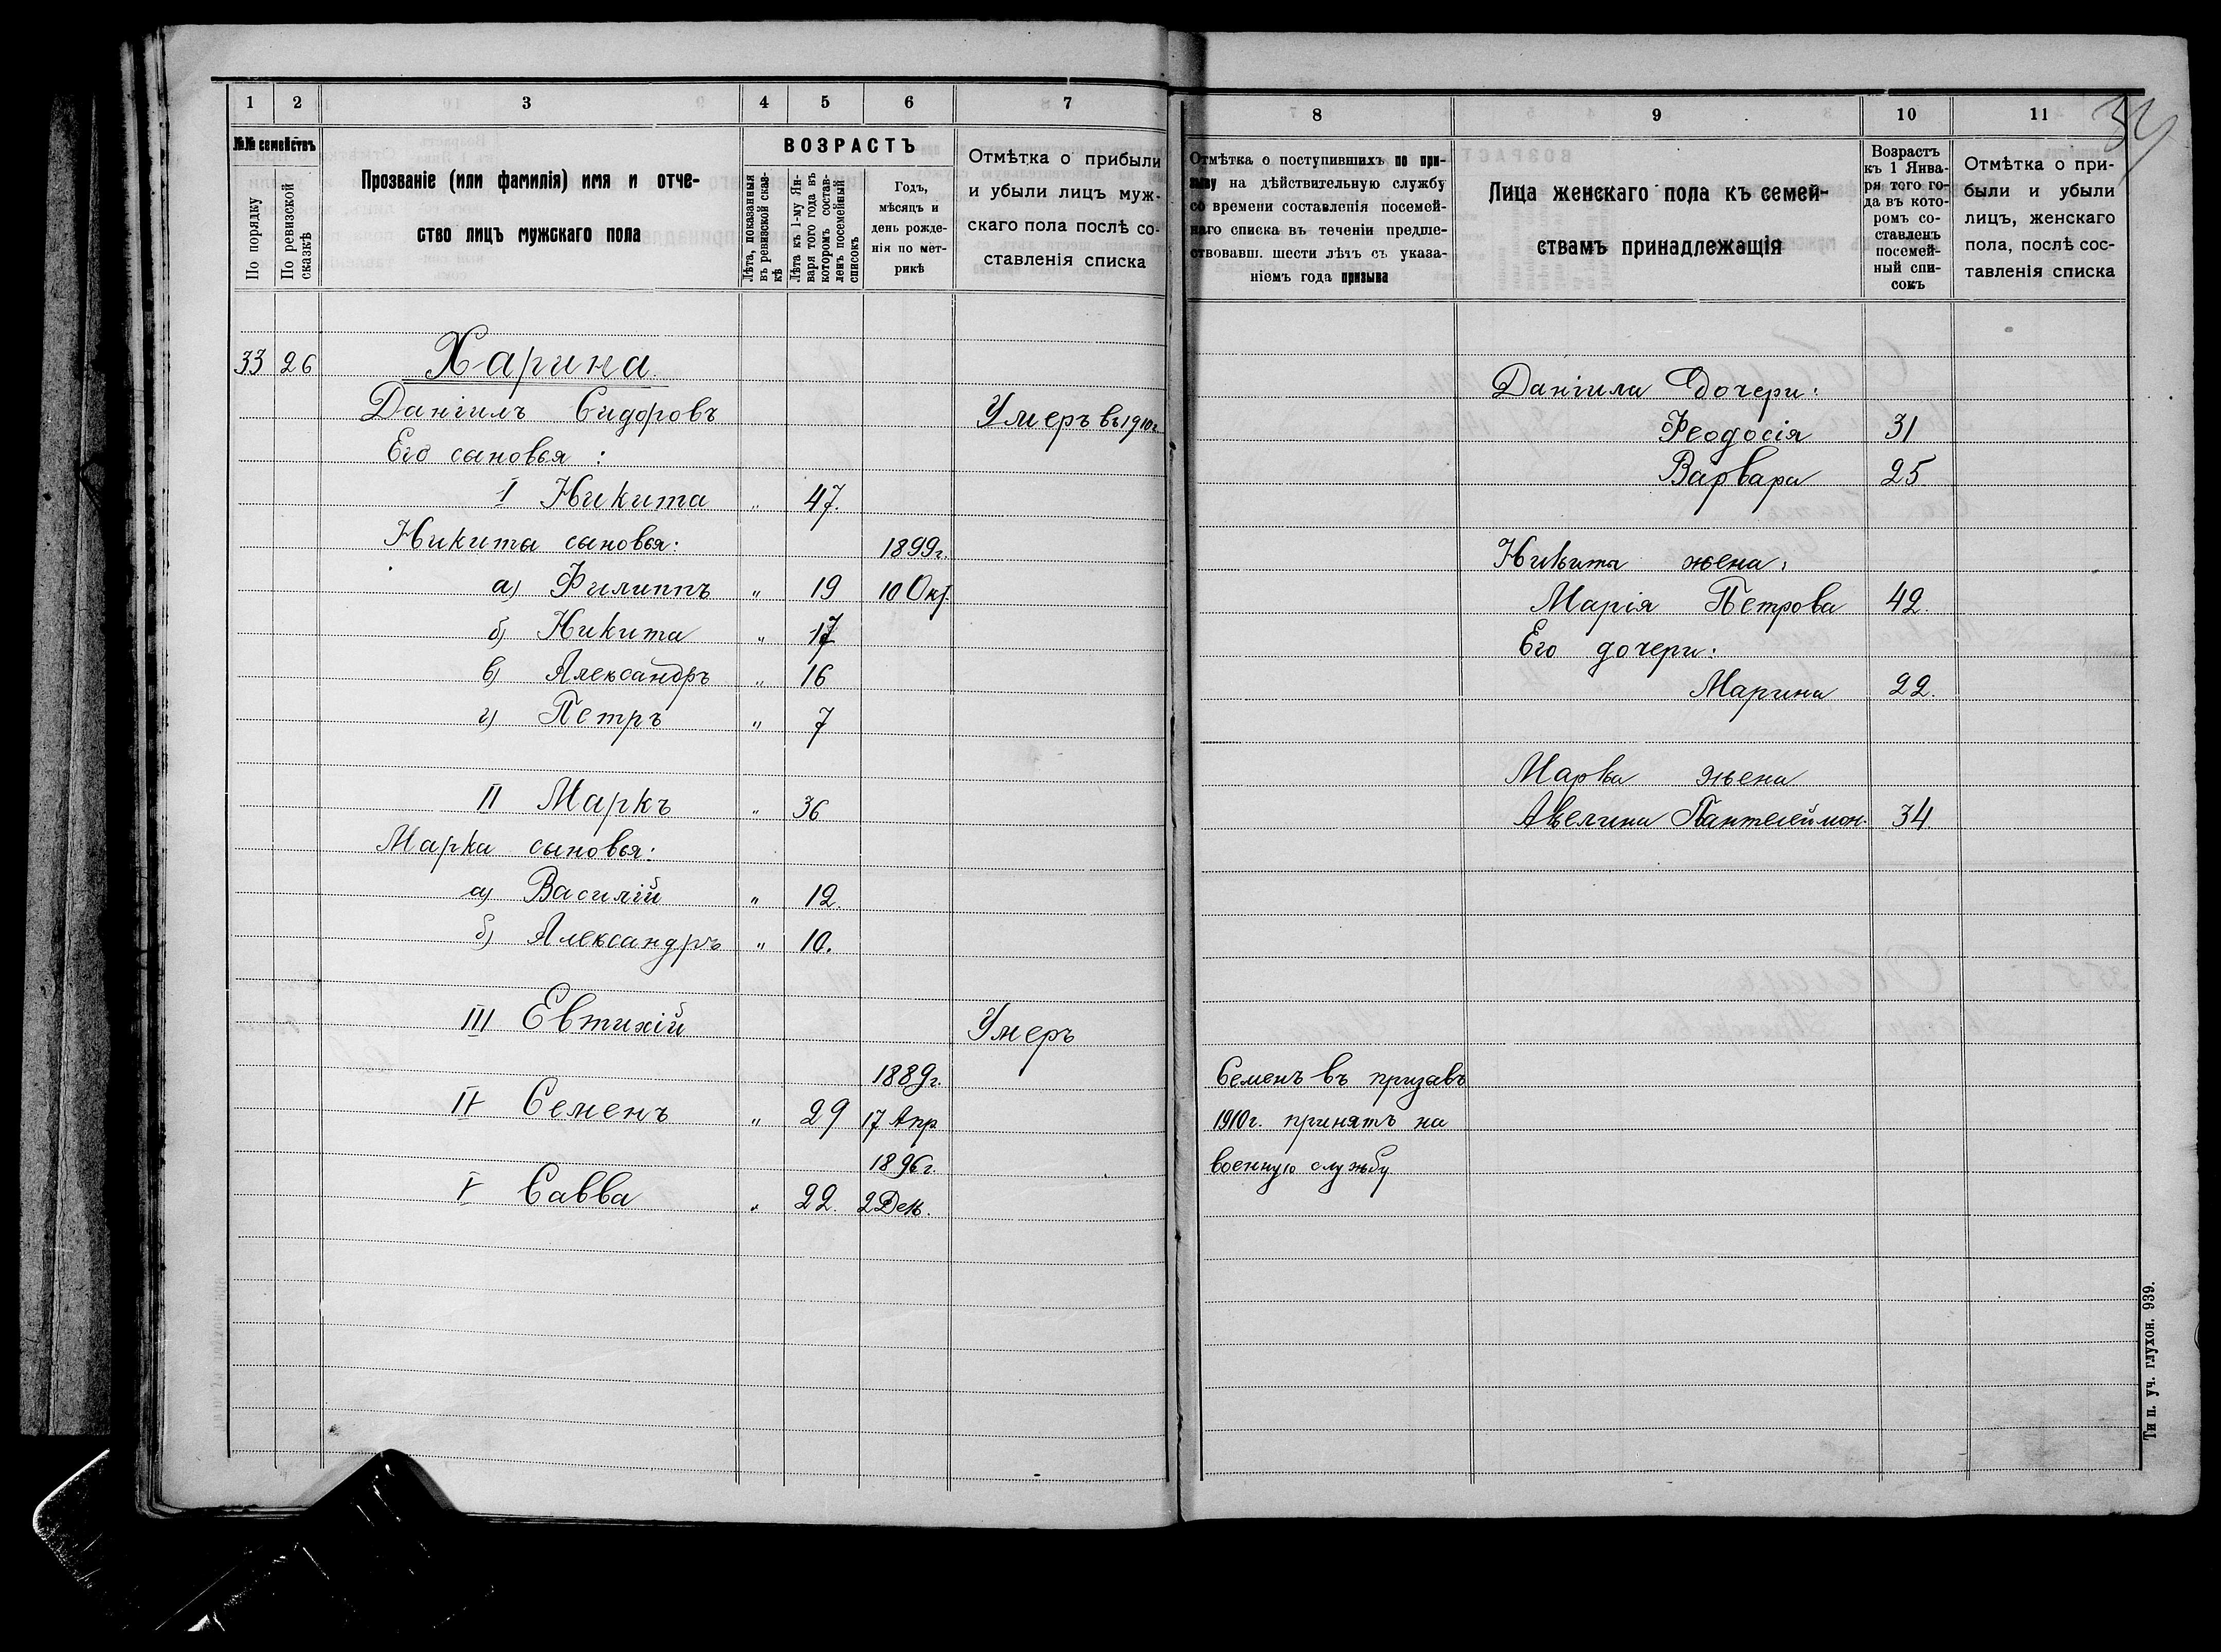 34
1 2 3 4 5 6 7
№№ семействъ
По порядку
По ревизской сказкѣ
Прозваніе (или фамилія) имя и отче-
ство лицъ мужскаго пола
ВОЗРАСТЪ
Лѣта, показанныя
въ ревизской сказ-
кѣ
Лѣта къ 1-му Ян-
варя того года въ
которомъ состав-
ленъ посемейный
списокъ
Годъ,
мѣсяцъ и
день рожде-
нія по мет-
рикѣ
Отмѣтка о прибыли
и убыли лицъ муж-
скаго пола послѣ со-
ставленія списка
33 26 Харина
Даніилъ Сидоровъ Умеръ въ 1910г.
Его сыновья :
I Никита " 47.
Никиты сыновья: 1899г.
а) Филиппъ " 19 10 Окт.
б) Никита " 17
в) Александръ " 16
г) Петръ " 7
II Маркъ " 36
Марка сыновья:
а) Василій " 12.
б) Александръ " 10.
III Евтихій Умеръ
1889г.
IV Семенъ " 29 17 Апр
1896г
V Савва " 22. 2 Дек.
8 9 10 11
Отмѣтка о поступившихъ по при-
зыву на дѣйствительную службу
со времени составленія посемей-
наго списка въ теченіи предше-
ствовавш. шести лѣтъ съ указа-
ніемъ года призыва
Лица женскаго пола къ семей-
ствамъ принадлежащія
Возрастъ
къ 1 Янва-
ря того го-
да въ кото-
ромъ со-
ставленъ
посемей-
ный спи-
сокъ
Отмѣтка о при-
были и убыли
лицъ, женскаго
пола, послѣ сос-
тавленія списка
Даніила дочери:
Феодосія 31
Варвара 25
Никиты жена:
Марія Петрова 42.
Его дочери:
Марина 22.
Марка жена
Авелина Пантелеймон. 34
Семенъ въ призывъ
1910г. принятъ на
военную службу
Тип. уч. глухон. 939.